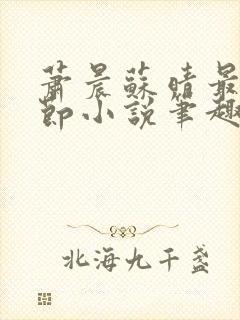 蕭晨蘇晴最
節小說筆趣
北海九千盞